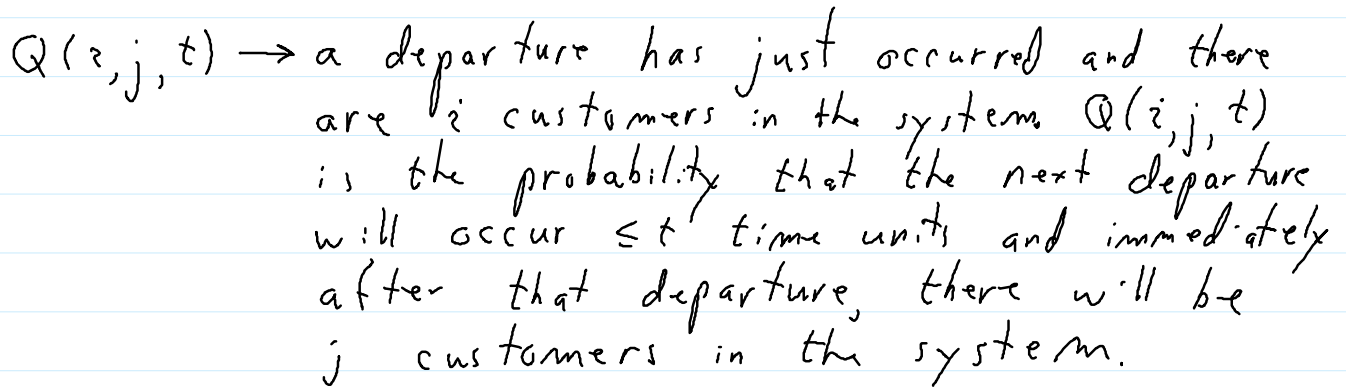 Q(i,j,t) → a departure has just occurred and there
are i customers in the system. Q(i,j,t)
is the probability that the next departure
will occur ≤ t time units and immediately
after that departure, there will be
j customers in the system.